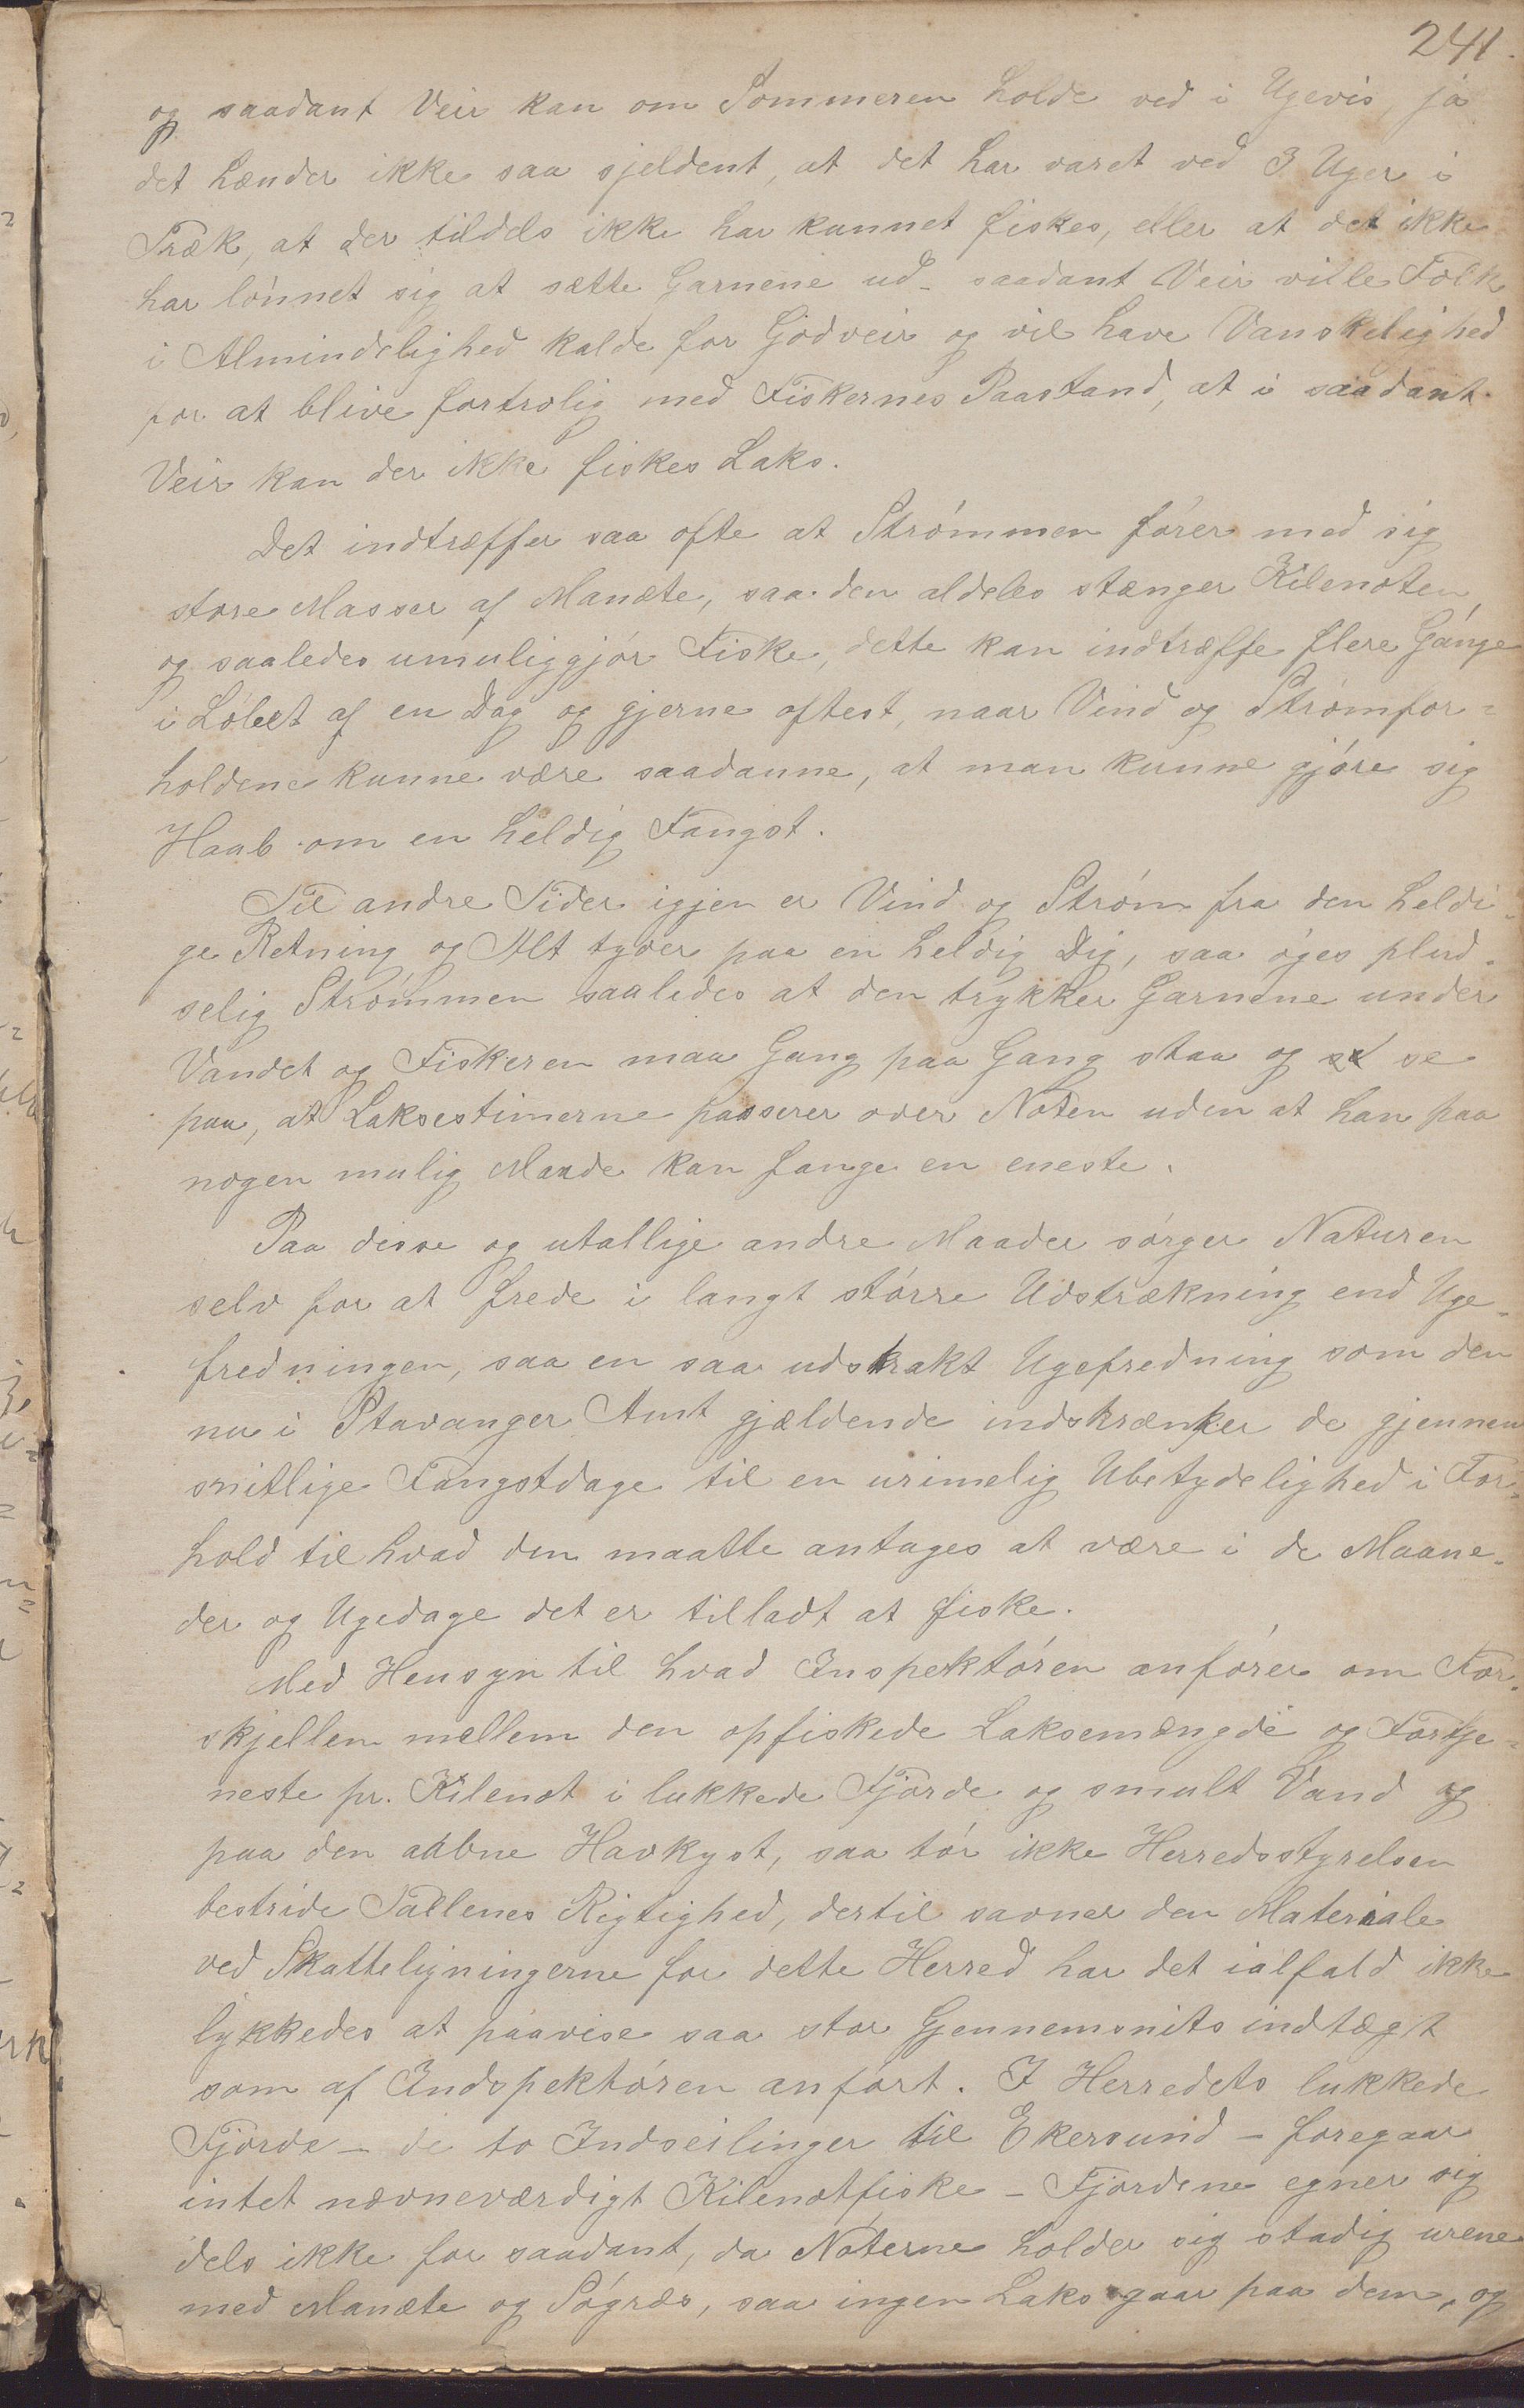 241.
og saadant Veir kan om Sommeren holde ved i Ugevis, ja
det hænder ikke saa sjeldent, at det har varet ved 3 Uger i
Træk, at der tildels ikke har kunnet fiskes, eller at det ikke
har lønnet sig at sætte Garnene ud – saadant Veir ville Folk
i Almindelighed kalde for Godveir og vil have Vanskelighed
for at blive fortrolig med Fiskernes Paastand, at i saadant
Veir kan der ikke fiskes Laks.
Det indtræffer saa ofte at Strømmen fører med sig
store Masser af Manæte, saa den aldeles stænger Kilenoten,
og saaledes umuliggjør Fiske, dette kan indtræffe flere Gange
i Løbet af en Dag og gjerne oftest, naar Vind og Strømfor-
holdene kunne være saadanne, at man kunne gjøre sig
Haab om en heldig Fangst.
Til andre Tider igjen er Vind og Strøm fra den heldi-
ge Retning og Alt tyder paa en heldig Dag, saa øges plud-
selig Strømmen saaledes at den trykker Garnene under
Vandet og Fiskeren maa Gang paa Gang staa og se
paa, at Laksestimerne passerer over Noten uden at han paa
nogen mulig Maade kan fange en eneste.
Paa disse og utallige andre Maader sørger Naturen
selv for at frede i langt større Udstrækning end Uge-
fredningen, saa en saa udstrakt Ugefredning som den
nu i Stavanger Amt gjældende indskrænker de gjennem
snitlige Fangstdage til en urimelig Ubetydelighed i For-
hold til hvad den maatte antages at være i de Maane-
der og Ugedage det er tilladt at fiske.
Med Hensyn til hvad Inspektøren anfører om For-
skjellen mellem den opfiskede Laksemængde og Fortje-
neste pr. Kilenot i lukkede Fjorde og smult Vand og
paa den aabne Havkyst, saa tør ikke Herredsstyrelsen
bestride Tallenes Rigtighed, dertil savner den Materiale
ved Skatteligningerne for dette Herred har det ialfald ikke
lykkedes at paavise saa stor Gjennemsnits indtægt
som af Indspektøren anført. I Herredets lukkede
Fjorde – de to Indseilinger til Ekersund – foregaar
intet nævneværdigt Kilenotfiske – Fjordene egner sig
dels ikke for saadant, da Nøterne holder sig stadig urene
med Manæte og Søgræs, saa ingen Laks gaar paa dem, og